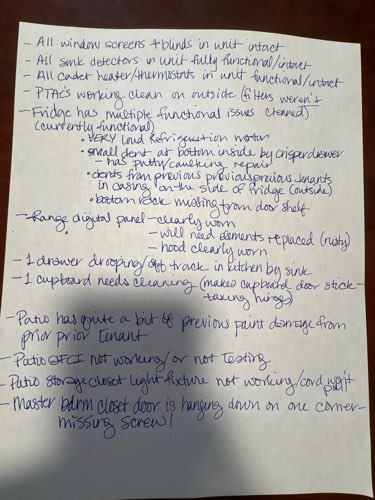 - All window screens + blinds in unit intact
- All smk detectors in unit fully functional/intact
- All cadet heater/thermostats in unit functional/intact
- PTAC's working clean on outside (filters weren't
- Fridge has multiple functional issues cleaned)
(currently functional)
• VERY loud Refrigeration motor
• small dent at bottom inside by crisper drawer
- has putty/caulking repair
• dents from previous previous previous tenants
in casing/on the side of fridge (outside)
• bottom rack missing from door shelf
- Range digital panel - clearly worn
- will need elements replaced (rusty)
- hood clearly worn
- 1 drawer drooping/off track in kitchen by sink
- 1 cupboard needs cleaning (makes cupboard door stick-
taxing hinges)
- Patio has quite a bit of previous paint damage from
prior prior tenant
- Patio GFCI not working/or not Testing
- Patio storage closet light fixture not working/cord won't
pull
- Master bdrm closet door is hanging down on one corner-
missing screw!